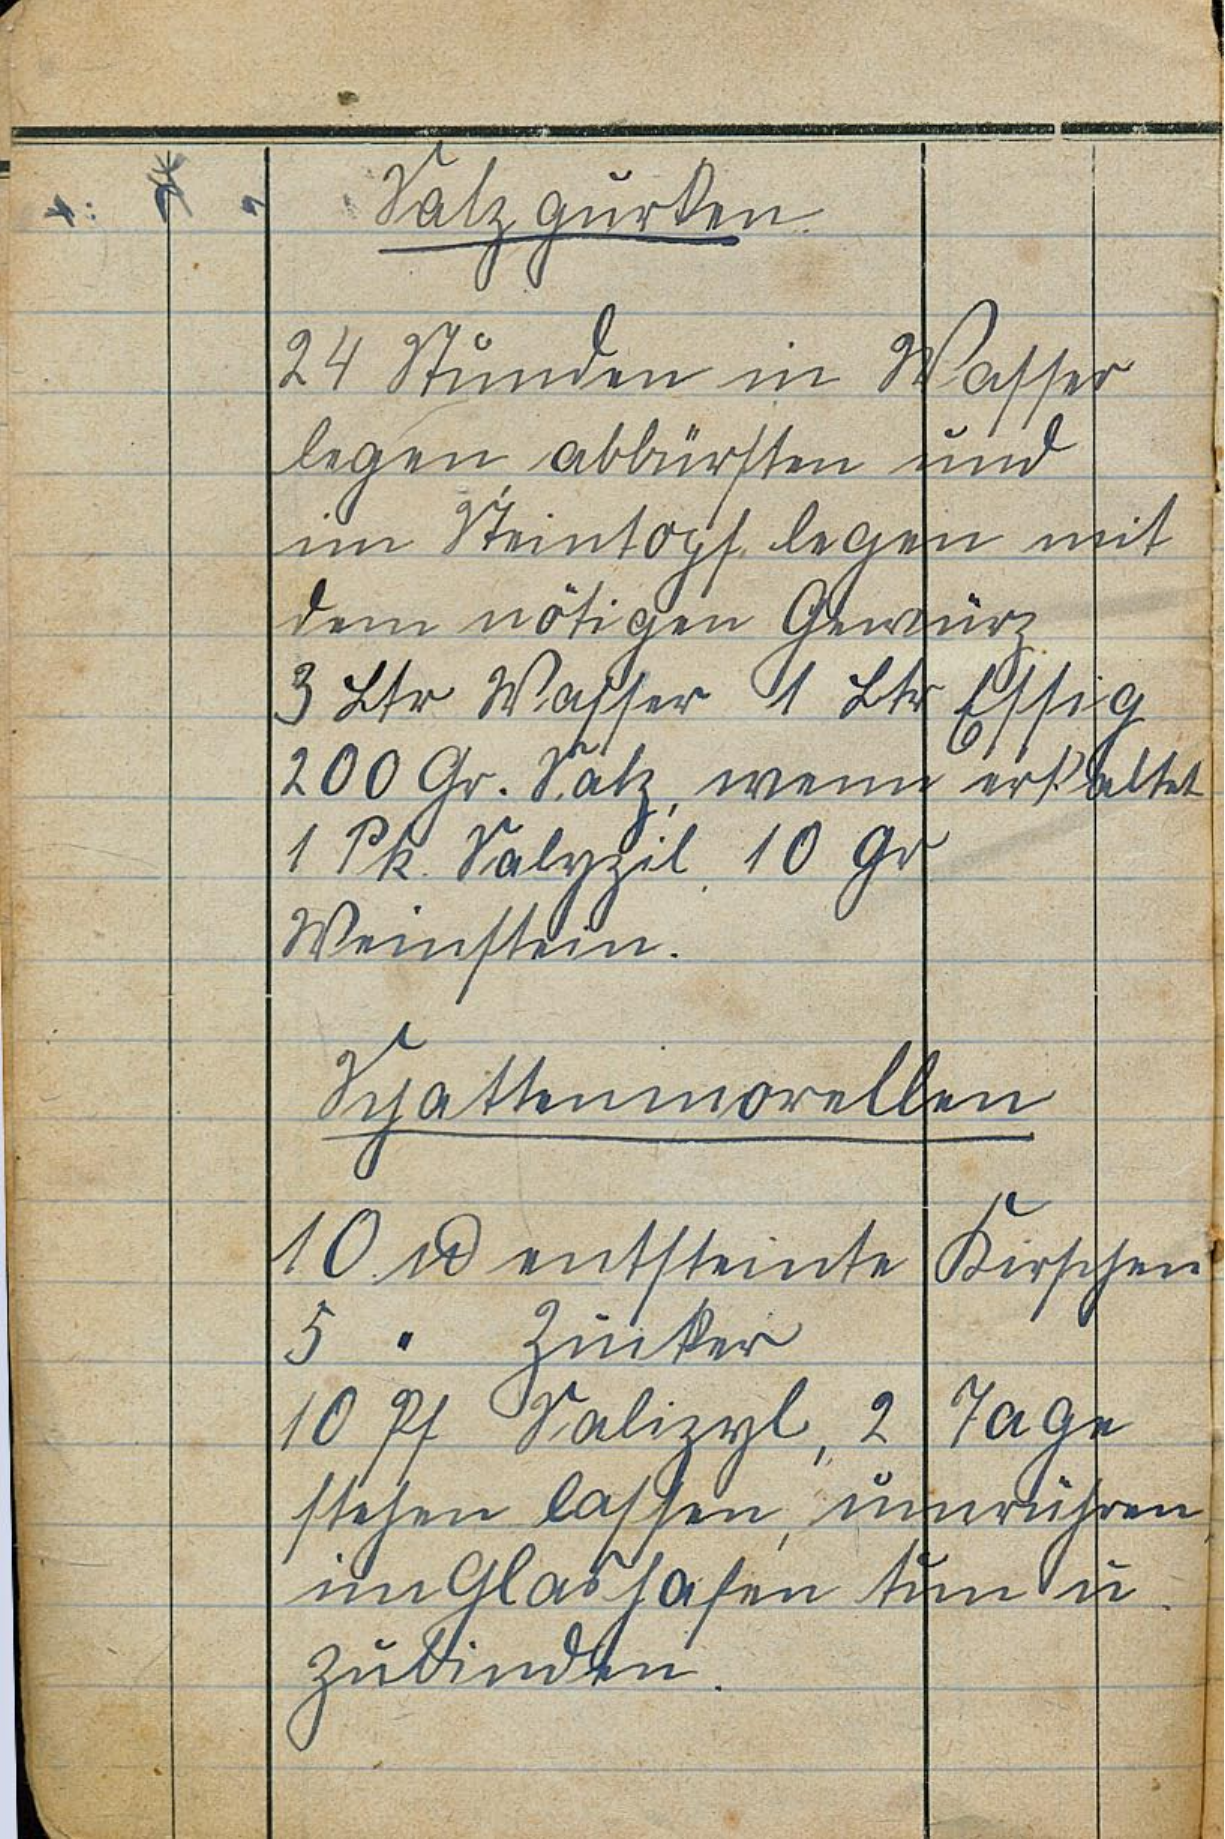 Salzgurken.
24 Stunden in Wasser
legen abbürsten und
im Steintopf legen mit
dem nötigen Gewürz
3 Ltr Wasser 1 Ltr Essig
200 Gr. Salz, wenn erkaltet
1 Pk. Salyzil, 10 gr
Weinstein.
Schattenmorellen
10 ℔ entsteinte Kirschen
5 " Zucker
10 Pf Salizyl, 2 Tage
stehen lassen, umrühren,
im Glashafen tun u.
zubinden.